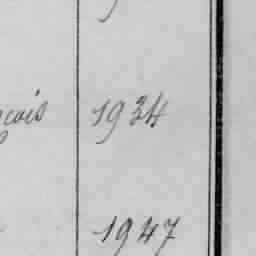 çois 1934
1947